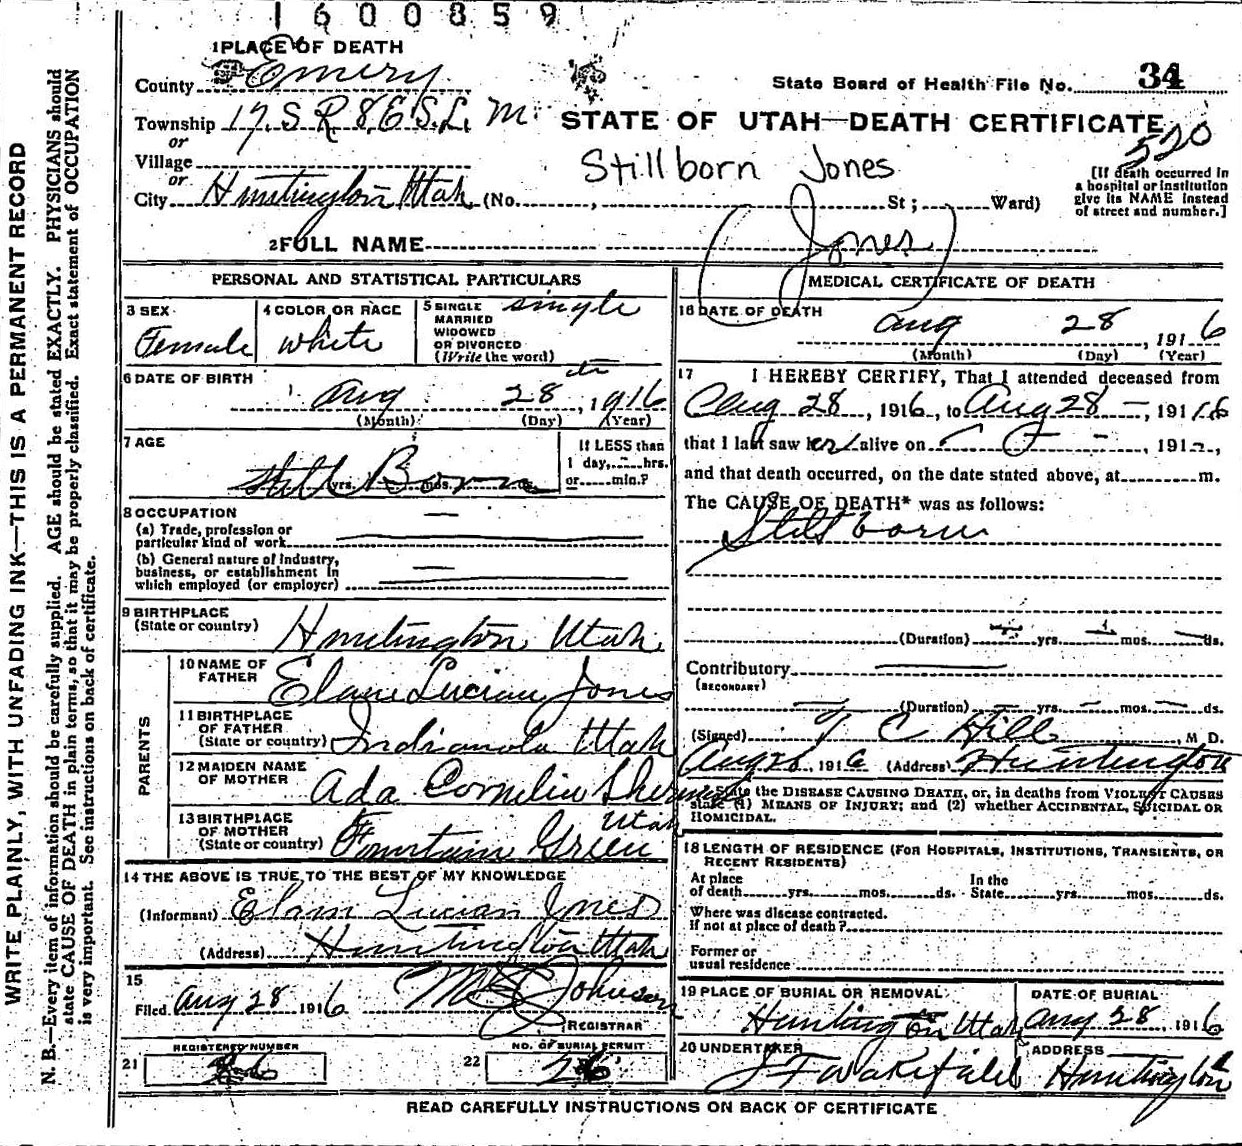 1600859
1 PLACE OF DEATH
County Emery
State Board of Health File No. 34
Township 17 S R 8 E S. L. M.
STATE OF UTAH—DEATH CERTIFICATE
or
520
Village
Stillborn Jones
or
City Huntington Utah (No. , St ; Ward)
[If death occurred in
a hospital or institution
give its NAME instead
of street and number.]
2 FULL NAME (Jones)
PERSONAL AND STATISTICAL PARTICULARS
3 SEX
Female
4 COLOR OR RACE
white
5 SINGLE
MARRIED
WIDOWED
OR DIVORCED
(Write the word)
single
6 DATE OF BIRTH
Aug 28th, 1916
(Month) (Day) (Year)
7 AGE
Still Born
yrs. mos. ds.
If LESS than
1 day, hrs.
or min.?
8 OCCUPATION
(a) Trade, profession or
particular kind of work
(b) General nature of industry,
business, or establishment in
which employed (or employer)
9 BIRTHPLACE
(State or country) Huntington Utah
PARENTS
10 NAME OF
FATHER Lucian Jones
11 BIRTHPLACE
OF FATHER
(State or country) Indianola Utah
12 MAIDEN NAME
OF MOTHER Ada Cornelia
13 BIRTHPLACE
OF MOTHER
(State or country) Fountain Green Utah
14 THE ABOVE IS TRUE TO THE BEST OF MY KNOWLEDGE
(Informant) Lucian Jones
(Address) Huntington Utah
15
Filed Aug 28 1916 Johnson
REGISTRAR
REGISTERED NUMBER
21
NO. OF BURIAL PERMIT
22 26
MEDICAL CERTIFICATE OF DEATH
16 DATE OF DEATH
Aug 28, 1916
(Month) (Day) (Year)
17 I HEREBY CERTIFY, That I attended deceased from
Aug 28, 1916, to Aug 28, 1916
that I last saw her alive on , 191 ,
and that death occurred, on the date stated above, at m.
The CAUSE OF DEATH* was as follows:
Still born
(Duration) yrs. mos. ds.
Contributory
(SECONDARY)
(Duration) yrs. mos. ds.
(Signed) T C Hill, M D.
Aug , 1916 (Address) Huntington
*State the DISEASE CAUSING DEATH, or, in deaths from VIOLENT CAUSES
state (1) MEANS OF INJURY; and (2) whether ACCIDENTAL, SUICIDAL OR
HOMICIDAL.
18 LENGTH OF RESIDENCE (FOR HOSPITALS, INSTITUTIONS, TRANSIENTS, OR
RECENT RESIDENTS)
At place
of death yrs. mos. ds.
In the
State yrs. mos. ds.
Where was disease contracted.
If not at place of death?
Former or
usual residence
19 PLACE OF BURIAL OR REMOVAL
Huntington Utah
DATE OF BURIAL
Aug 28, 1916
20 UNDERTAKER
Wakefield
ADDRESS
Huntington
READ CAREFULLY INSTRUCTIONS ON BACK OF CERTIFICATE
WRITE PLAINLY, WITH UNFADING INK—THIS IS A PERMANENT RECORD
N. B.—Every item of information should be carefully supplied. AGE should be stated EXACTLY. PHYSICIANS should
state CAUSE OF DEATH in plain terms, so that it may be properly classified. Exact statement of OCCUPATION
is very important. See instructions on back of certificate.